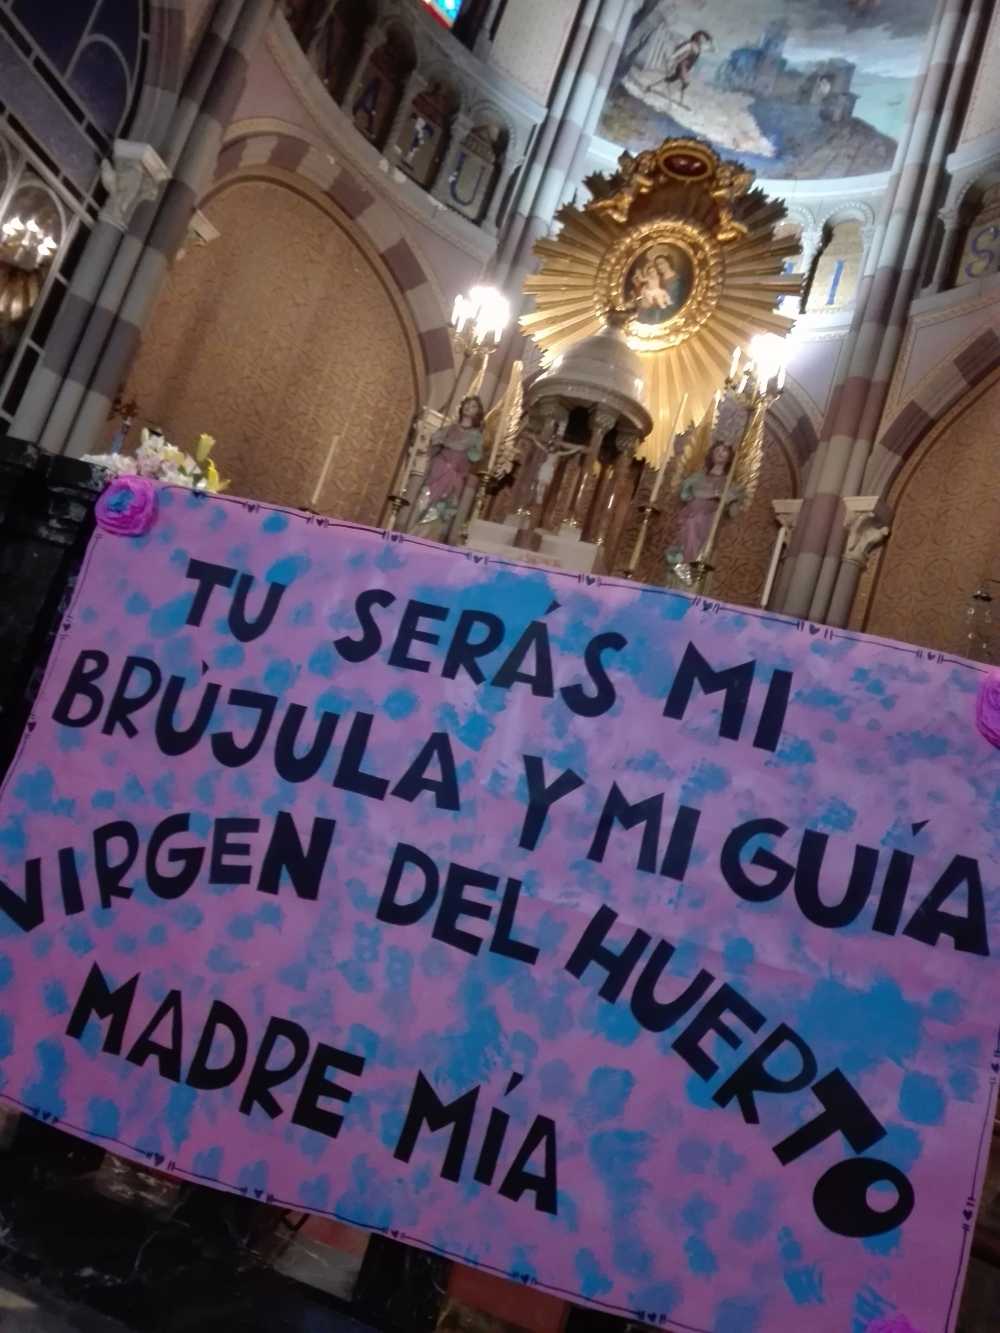 TU SERÁS MI
BRÚJULA Y MI GUÍA
VIRGEN DEL HUERTO
MADRE MÍA